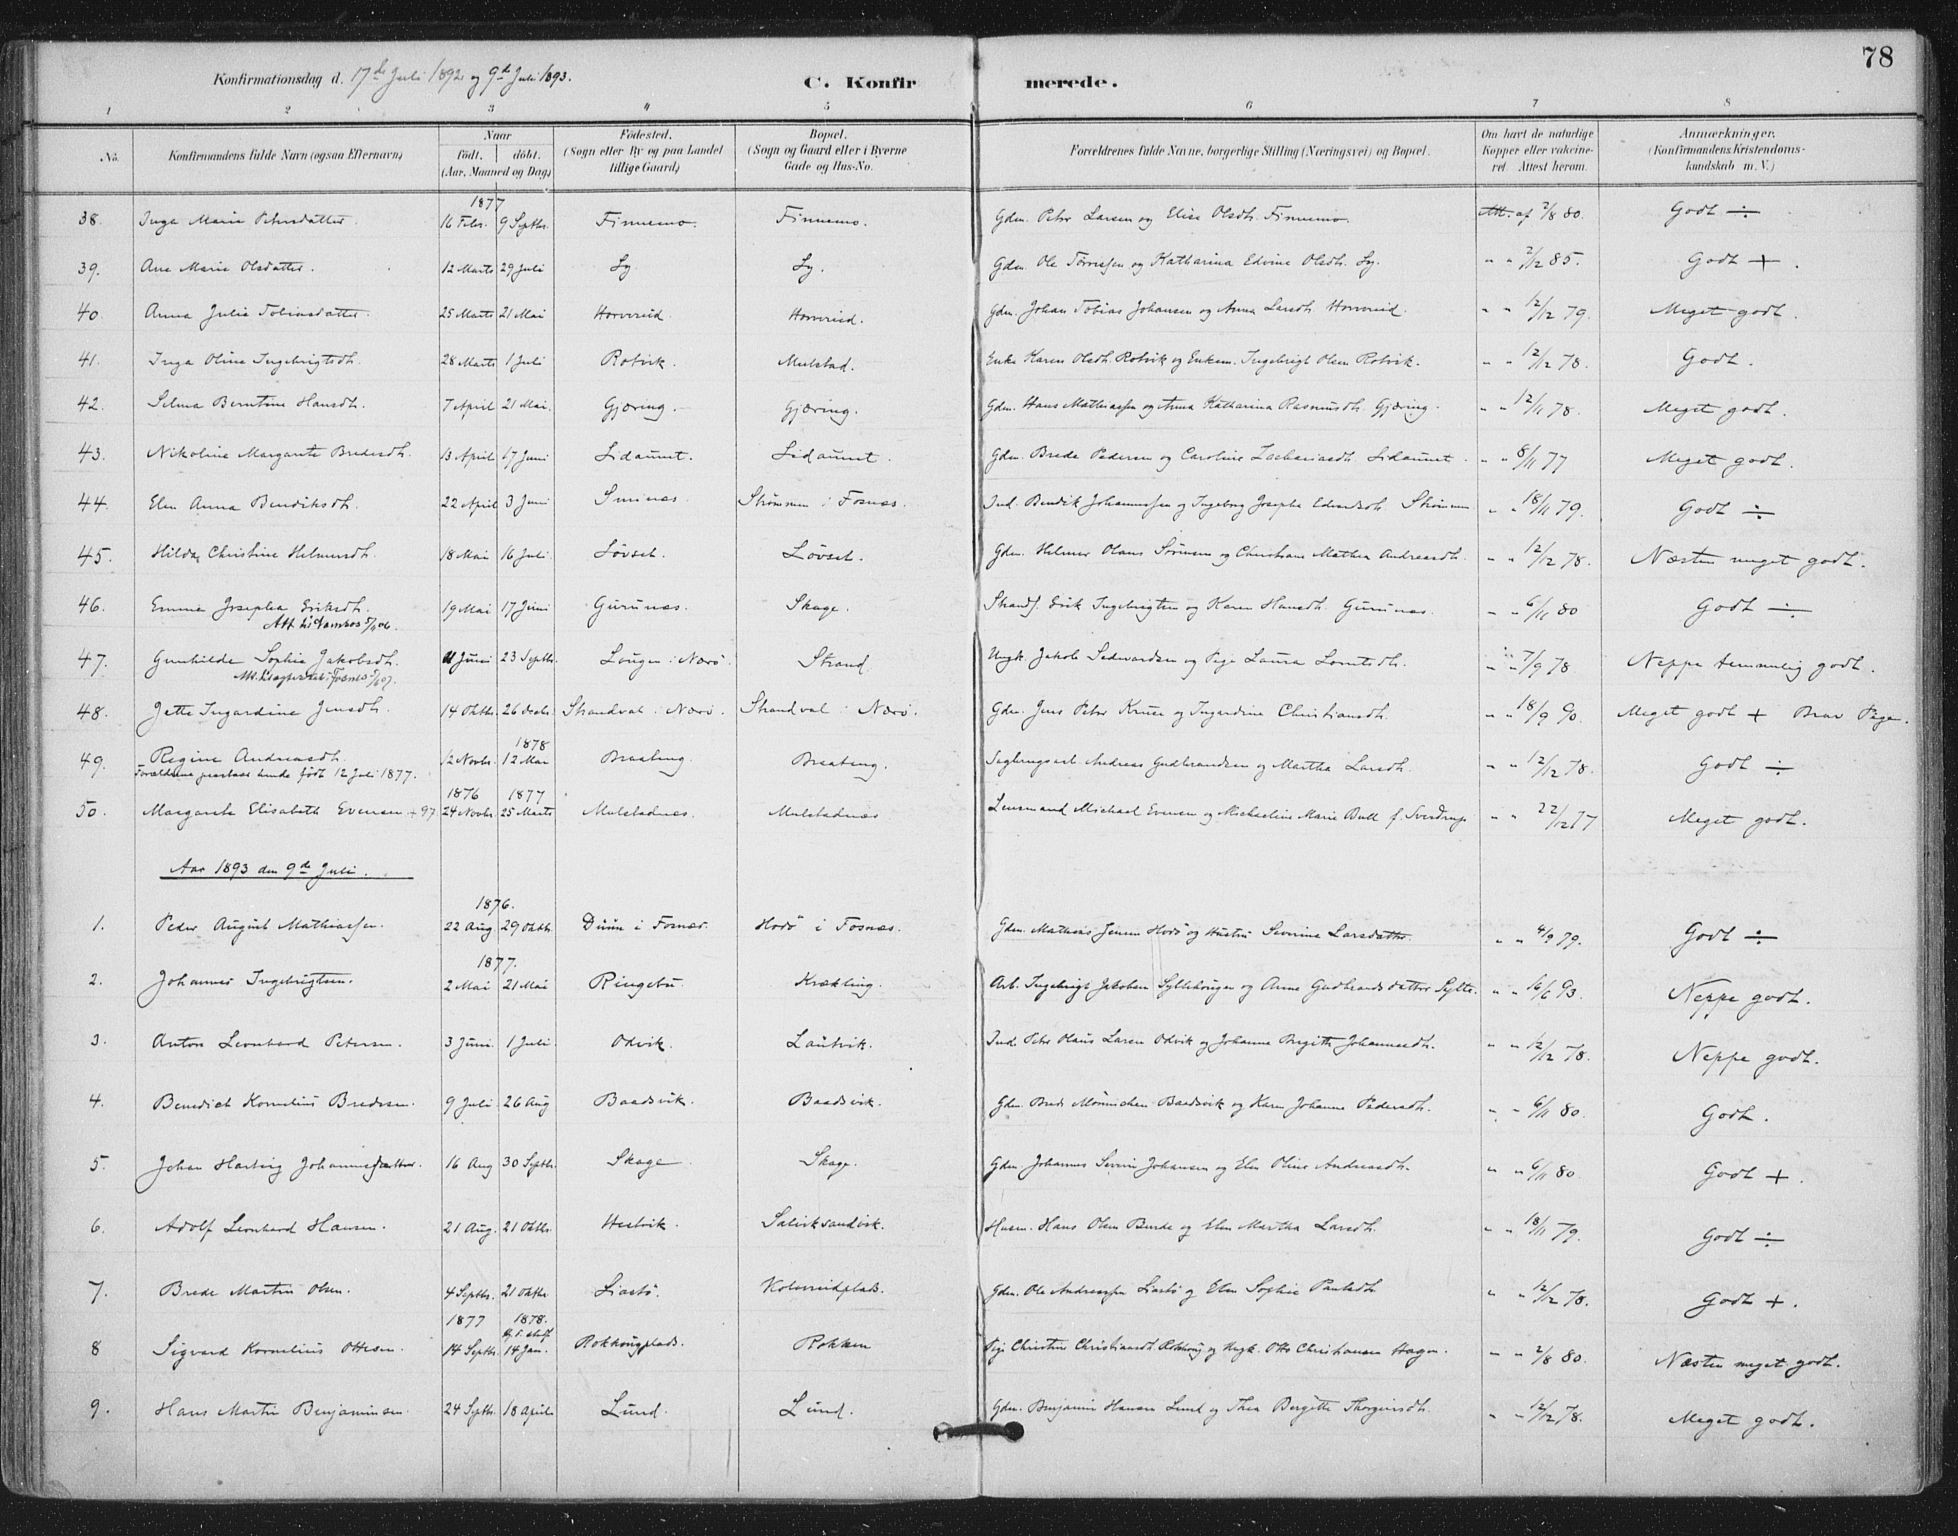 78
Konfirmationsdag d. 17de Juli 1892 og 9de Juli 1893.
C. Konfirmerede.
1 2 3 4 5 6 7 8
No. Konfirmandens fulde Navn (ogsaa Efternavn) Naar født. døbt. (Aar, Maaned og Dag) Fødested. (Sogn eller By og paa Landet tillige Gaard) Bopæl. (Sogn og Gaard eller i Byerne Gade og Hus-No. Forældrenes fulde Navne, borgerlige Stilling (Næringsvei) og Bopæl. Om havt de naturlige Kopper eller vakcineret. Attest herom. Anmærkninger. (Konfirmandens Kristendomskundskab m. V.)
1877
38. Inga Marie Petersdatter 16 Febr. 9 Septbr. Finnemo. Finnemo. Gdm. Peter Larsen og Elise Olsdt. Finnemo. Att. af 2/8 80. Godt ÷
39. Ane Marie Olsdatter. 12 Marts 29 Juli Ly. Ly. Gdm. Ole Tørresen og Katharina Edvine Olsdt. Ly. " " 2/12 85. Godt +.
40. Anna Julie Tobiasdatter. 25 Marts 21 Mai Horvereid Horvereid. Gdm. Johan Tobias Johansen og Anna Larsdt. Horvereid. " " 12/12 79. Meget godt.
41. Inga Oline Ingebrigtsdt. 28 Marts 1 Juli Rotvik. Mulstad. Enke Karen Olsdt. Rotvik og Enkem. Ingebrigt Olsen Rotvik. " " 12/12 78. Godt.
42. Selma Berntine Hansdt. 7 April 21 Mai. Gjæring. Gjæring. Gdm. Hans Mathiassen og Anna Katharina Rasmusdt. Gjæring. " " 12/11 78. Meget godt.
43. Nikoline Margarete Bredesdt. 13 April 17 Juni Lidaunet. Lidaunet. Gdm. Brede Pedersen og Caroline Zachariasdt. Lidaunet. " " 8/11 77 Meget godt.
44. Elen Anna Bendiksdt. 22 April 3 Juni Sminæs. Strømmen i Fosnæs. Ind. Bendik Johannessen og Ingeborg Josepha Edvardsdt. Strømmen " " 18/11 79. Godt ÷
45. Hilda Christine Helmersdt. 18 Mai 16 Juli Løvset. Løvset. Gdm. Helmer Olaus Sørensen og Christiane Mathea Andreasdt. " " 12/12 78. Næsten meget godt.
46. Emma Josepha Eriksdt. 19 Mai 17 Juni Gurunæs. Skage. Strands. Erik Ingebrigtsen og Karen Hansdt. Gurunæs. " " 6/11 80 Godt ÷
Att. til Namsos 5/4 06.
47. Gunhilde Sophie Jakobsdt. 11 Juni 23 Septbr. Lougen i Nærø. Strand Ungk. Jakob Sedvardsen og Pige Laura Lorntsdt. " " 7/9 78 Neppe temmelig godt.
48. Jette Ingardine Jensdt. 14 Oktbr. 26 Decbr. Strandval i Nærø. Strandval i Nærø. Gdm. Jens Peter Kruse og Ingardine Christiansdt. " " 18/9 90. Meget godt + Brav Pige.
1878
49. Regine Andreasdt. 12 Novbr. 12 Mai Braateng Braateng. Teglbrugsarb. Andreas Gudbrandsen og Martha Larsdt. " " 12/12 78. Godt ÷
Forældrene paastaar hende født 12 Juli 1877.
1876 1877
50. Margarete Elisabeth Evensen + 97 24 Novbr. 25 Marts Mulstadnæs. Mulstadnæs Lensmand Michael Evensen og Michaeline Marie Bull f. Sverdrup " " 22/12 77 Meget godt.
Aar 1893 den 9de Juli.
1876.
1. Peder August Mathiassen. 22 Aug 29 Oktbr. Duun i Fosnæs. Hodø i Fosnæs. Gdm. Mathias Jensen Hodø og Hustru Severine Larsdatter. " " 4/9 79. Godt ÷
1877.
2. Johannes Ingebrigtsen. 2 Mai 21 Mai Ringebu. Krækling. Arb. Ingebrigt Jakobsen Syltehougen og Anne Gudbrandsdatter Sylte. " " 16/6 93. Neppe godt.
3. Anton Leonhard Petersen. 3 Juni 1 Juli Odvik. Lautvik. Ind. Peter Olaus Larsen Odvik og Johanna Birgitte Johannesdt. " " 12/12 78. Neppe godt.
4. Benedict Kornelius Bredesen. 9 Juli 26 Aug Baadsvik. Baadsvik. Gdm. Brede Mønnichen Baadsvik og Karen Johanna Pedersdt. " " 6/11 80. Godt.
5. Johan Hartvig Johannessen. 16 Aug 30 Septbr. Skage. Skage. Gdm. Johannes Severin Johansen og Elen Oline Andreasdt. " " 6/11 80. Godt +.
6. Adolf Leonhard Hansen. 21 Aug. 21 Oktbr. Hestvik. Salviksandvik. Husm. Hans Olsen Burde og Elen Martha Larsdt. " " 18/11 79. Godt ÷
7. Brede Martin Olsen. 4 Septbr. 21 Oktbr. Liastø. Kolvereidplads. Gdm. Ole Andreassen Liastø og Elen Sophie Paulsdt " " 12/12 78. Godt +.
1877 1878.
8 Sigvard Kornelius Ottesen. 14 Septbr. 14 Jan. Rokkougplads. Rokken Pige Christine Christiansdt. og Ungk. Otto Christiansen Hagen. " " 2/8 80. Næsten meget godt.
9. Hans Martin Benjaminsen. 24 Septbr. 18 April Lund. Lund. Gdm. Benjamin Hansen Lund og Thea Bergitte Thorgeirsdt. " " 12/12 78. Meget godt.